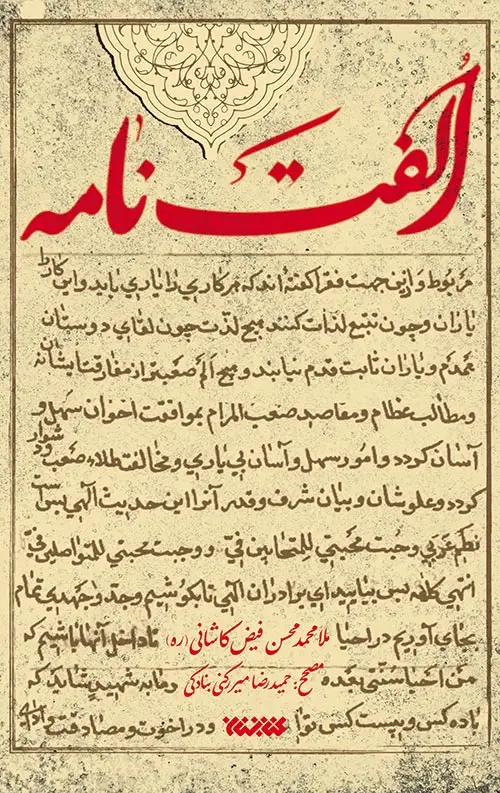 الفت نامه
مربوط و ازین جهت فقرا گفته‌اند که هر کاری را یاری باید و این کار را
یاران و چون تتبع لذات کنند هیچ لذت چون لقای دوستان
همدم و یاران ثابت قدم نیابند و هیچ الم صعبتر از مفارقت ایشان نه
و مطالب عظام و مقاصد صعب المرام بموافقت اخوان سهل و
آسان گردد و امور سهل و آسان بی یاری و مخالفت صعب و دشوار
گردد و علو شان و بیان شرف و قدر آنرا این حدیث الهی بس است
نظم عربی وجبت محبتی للمتحابین فی و وجبت محبتی للمتواصلین فی
انتهی کلامه پس بیایید ای برادران الهی تا بکوشیم و جد و جهدی تمام
بجای آوریم در احیا ملا محمد محسن فیض کاشانی (ره) تا داخل آنها باشیم که
من احیا سنتی بعده مصحح: حمیدرضا میرکنی بنادکی و مابه شهید شاید که
یازده کس و بیست کس توا کتابستان و در اخوت و مصادقت و ادای